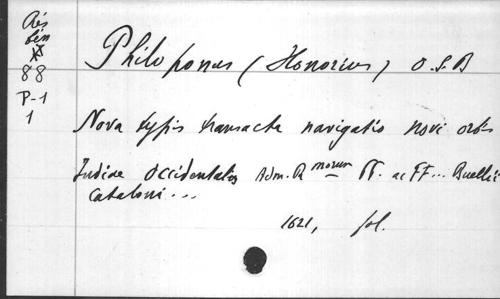 Rés
88
P-1
1
Philoponus (Honorius) O.S.B
Nova typis transacta navigatio novi orbis
Indiae Occidentalis Adm. R norum PP. ac FF... Buellii
Cataloni...
1621, fol.